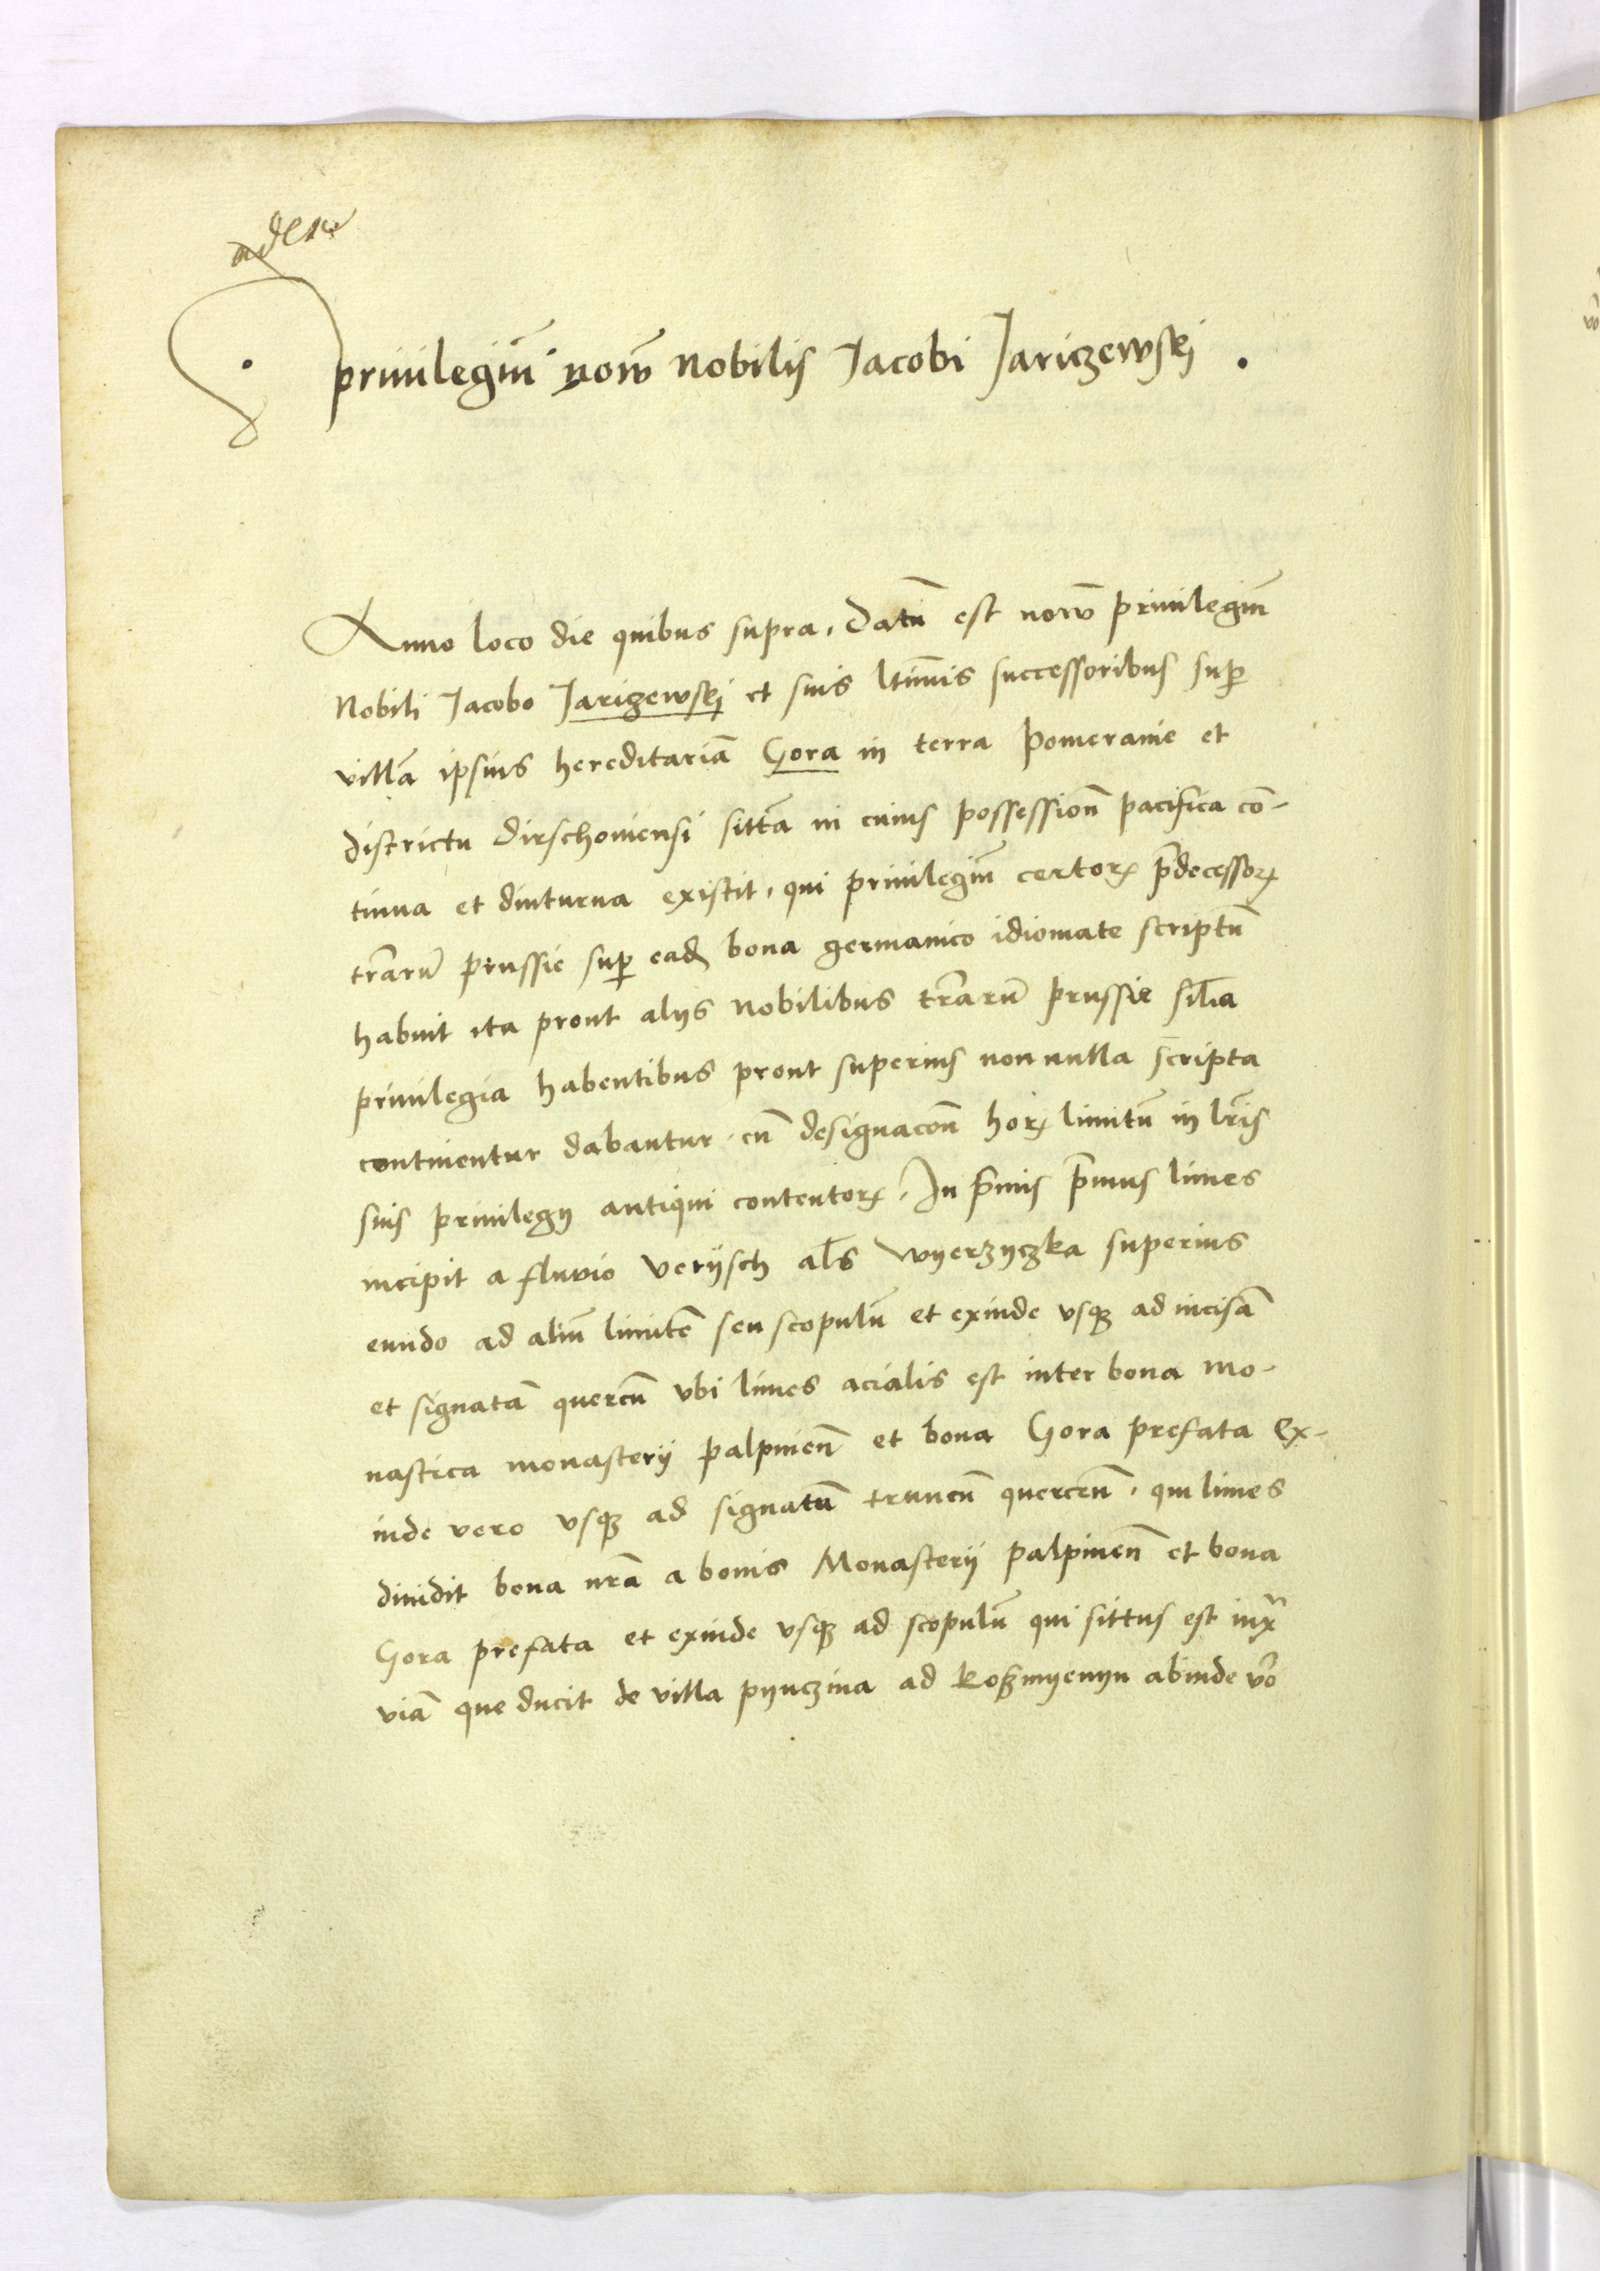 priuilegiū nouū nobilis Jacobi Jariczewskj .
Anno loco die quibus supra . Datū est nouū priuilegiū
Nobili Jacobo Jariczewskj et suis ltimis successoribus sup̱
villā ipsius hereditariā Gora in terra pomeranie et
districtu dirschouiensi sittā in cuius possessioñ pacifica cō-
tinua et diuturna existit . qui priuilegiū certoꝝ p̄decessoꝝ
trarū prussie sup̱ eadē bona germanico idiomate scriptū
habuit ita prout alijs nobilibus trarū prussie silia
priuilegia habentibus prout superius non nulla scripta
continentur dabantur . cū designacoñ hoꝝ limitū in lris
suis priuilegij antiqui contentoꝝ . In p̄mis p̄mus limes
incipit a fluvio verijsch als wyerzyczka superius
eundo ad aliū limitē seu scopulū et exinde vsqꝫ ad incisā
et signatā quercū vbi limes acialis est inter bona mo-
nastica monasterij palpinēn et bona Gora prefata ex-
inde vero vsqꝫ ad signatū truncū quercenū . qui limes
diuidit bona nrā a bonis Monasterij palpinēn et bona
Gora prefata et exinde vsqꝫ ad scopulū qui sittus est iuxᵃ
viā que ducit de villa pijnczina ad koszmijemijn abinde vo